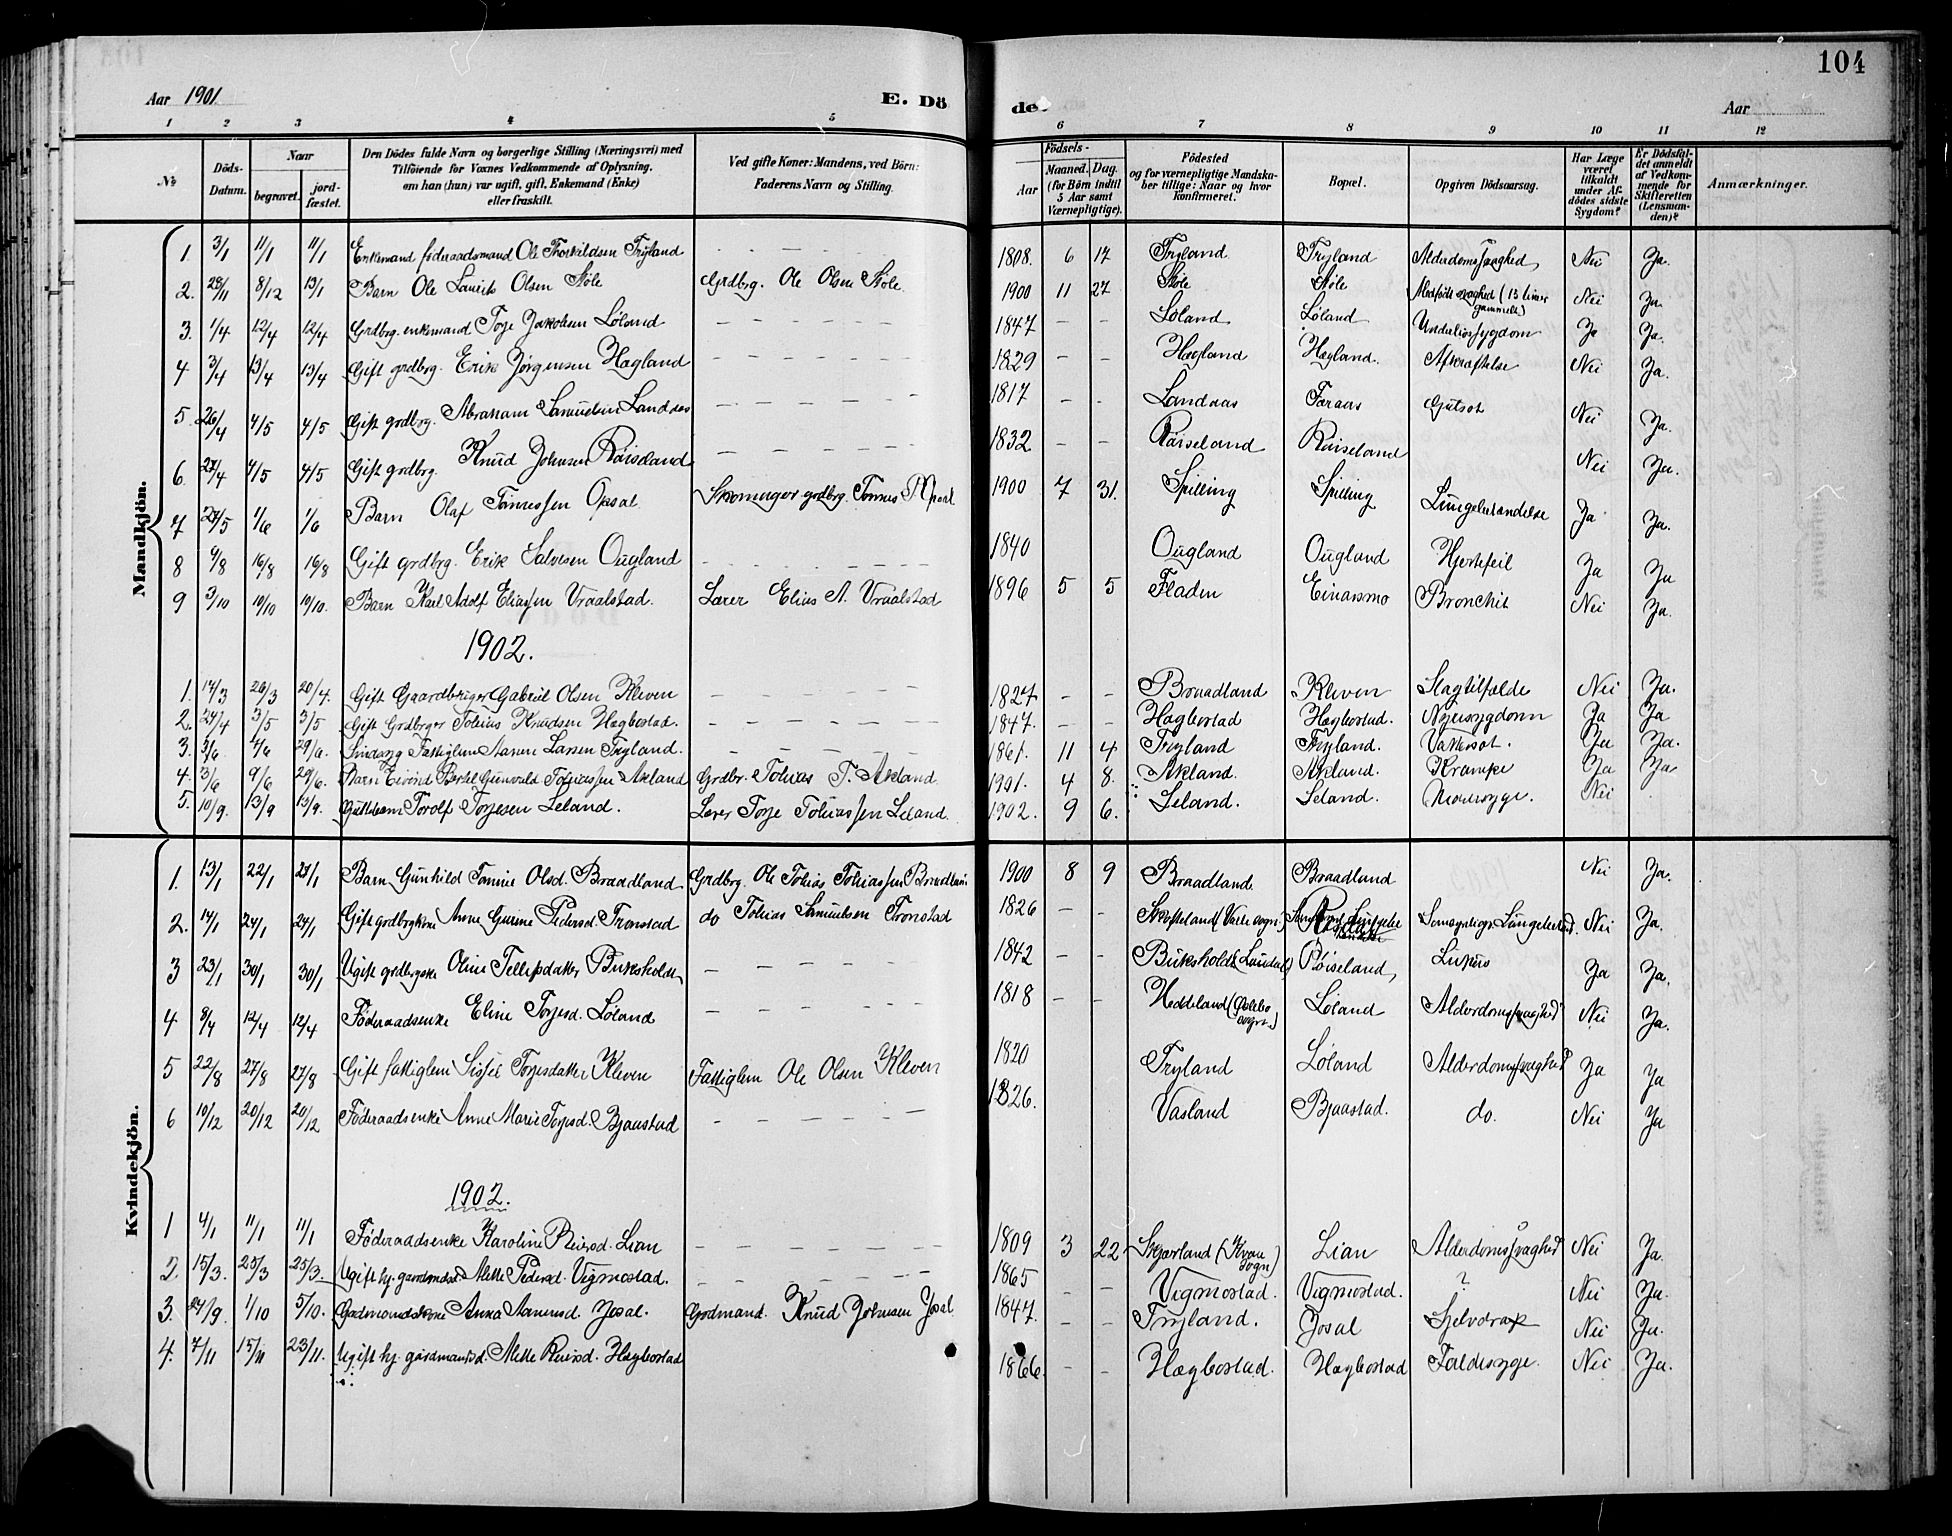 104
Aar 1901. E. Dö de. Aar
1 2 3 4 5 6 7 8 9 10 11 12
No Döds-Datum. Naar begravet. jord-fæstet. Den Dödes fulde Navn og borgerlige Stilling (Næringsvei) med Tilföiende for Voxnes Vedkommende af Oplysning, om han (hun) var ugift, gift, Enkemand (Enke) eller fraskilt. Ved gifte Koner: Mandens, ved Börn: Faderens Navn og Stilling. Födsels- Aar Maaned. Dag. (for Börn indtil 5 Aar samt Værnepligtige). Födested og for værnepligtige Mandskaber tillige: Naar og hvor konfirmeret. Bopæl. Opgiven Dödsaarsag. Har Læge været tilkaldt under Afdödes sidste Sygdom? Er Dödsfaldet anmeldt af Vedkommende for Skifteretten (Lensmanden)? Anmærkninger.
Mandkjön.
1. 3/1 11/1 11/1 Enkemand föderaadsmand Ole Thorkildsen Tryland - - - 1808. 6 17 Tryland Tryland Alderdomssvaghed Nei Ja.
2. 28/11 8/12 13/1 Barn Ole Laurits Olsen Støle Grdbrg. Ole Olsen Støle 1900 11 27 Støle Støle Medfødt svaghed (13 timer gammelt) Nei Ja.
3. 1/4 12/4 12/4 Grdbrg. enkemand Torje Jakobsen Løland - - - 1847 - - Løland Løland Underlivssygdom Ja Ja.
4 3/4 13/4 13/4 Gift grdbrg. Erik Jørgensen Hægland - - - 1829 - - Hægland Hægland. Afkræftelse Nei Ja.
5 26/4 4/5 4/5 Gift grdbrg. Abraham Samuelsen Landaas - - - 1817 - - Landaas Faraas Gulsot Nei Ja.
6. 27/4 4/5 4/5 Gift grdbrg. Knud Johnsen Røiseland - - - 1832 - - Røiseland Røiseland Nei Ja.
7 27/5 1/6 1/6 Barn Olaf Tønnessen Opsal grdbrg. Tønnes 1900 7 31. Spilling Spilling Lungebetændelse Ja Ja.
8 9/8 16/8 16/8 Gift grdbrg. Erik Salvesen Ougland - - - 1840 Ougland Ougland Hjertefeil Ja Ja
9 3/10 10/10 10/10. Barn Karl Adolf Eliassen Vraalstad. Lærer Elias A. Vraalstad 1896 5 5 Fladen Einarsmo Bronchit Nei Ja.
1902.
1. 14/3 26/3 20/4. Gift Gaardbruger Gabriel Olsen Kleven - - - 1827 - - Braadland Kleven Slagtilfælde Nei Ja.
2. 24/4 3/5 3/5 Gift Grdbrger Tobias Knudsen Hægbostad. - - - 1847. - - Hægbostad Hægbostad. Nyresygdom Ja Ja
3. 3/6 4/6 29/6. Fattiglem Aanen Larsen Tryland. - - - 1861. 11 4 Tryland Tryland. Vattersot. Ja Ja.
4. 3/6 9/6 29/6. Barn Eivind Bertel Gunvald Tobiassen Akland Grdbr. Tobias T. Akland 1901. 4 8. Akland. Akland. Krampe Ja Ja
5. 10/9. 13/9 13/9. Guttebarn Torolf Torjesen Leland. Lærer Torje Tobiassen Leland. 1902. 9 6. Leland. Leland. Nei
Kvindekjön.
1. 13/1 22/1 23/1 Barn Gunhild Tomine Olsd. Braadland Grdbrg. Ole Tobias Tobiassen Braadland 1900 8 9 Braadland Braadland Nei Ja.
2. 14/1 24/1 24/1 Gift grdbrgkone Anne Gurine Pedersd. Tronstad do Tobias Samuelsen Tronstad 1826 - - (Valle sogn) Lungebetænd. Nei Ja.
3 23/1 30/1 30/1 Ugift grdbrgske Oline Tellefsdatter Buksholdt - - - 1842 - - Buksholdt (Laudal) Røiseland, Lupus Ja Ja.
4 8/4 12/4 12/4 Føderaadsenke Eline Torjesd. Løland - - - 1818 - - Heddeland (Holebo sogn.) Løland Alderdomssvaghed Nei Ja.
5 22/8 27/8 27/8 Gift fattiglem Sissel Torjesdatter Kleven Fattiglem Ole Olsen Kleven 1820 Tryland Løland Alderdomssvaghed Ja Ja
6 10/12 20/12 20/12 Føderaadsenke Anne Marie Torjesd. Bjaastad - - - 1826. Vasland Bjaastad. do. Nei Ja
1902.
1 4/1 11/1 11/1 Føderaadsenke Karoline Reiersd. Lian - - - 1809 3 22 Skjærland (Kvaa sogn) Lian Alderdomssvaghed Nei Ja.
2. 15/3. 25/3 25/3. Ugift hj. gaardmdsd. Mette Pedersd. Vigmostad. - - - 1865 - - Vigmostad. Vigmostad. ? Nei Ja.
3. 24/9. 1/10 5/10. Gardmandskone Anna Aanensd. Josal. Gardmand. Knud Johnsen Josal 1847. - - Tryland. Josal Sjelvdrap Nei Ja.
4. 7/11 15/11 23/11. Ugift hj. gårdmandsd. Mette Reiersd. Hægbostad 1866. - - Hægbostad. Hægbostad Faldesyge. Nei Ja.